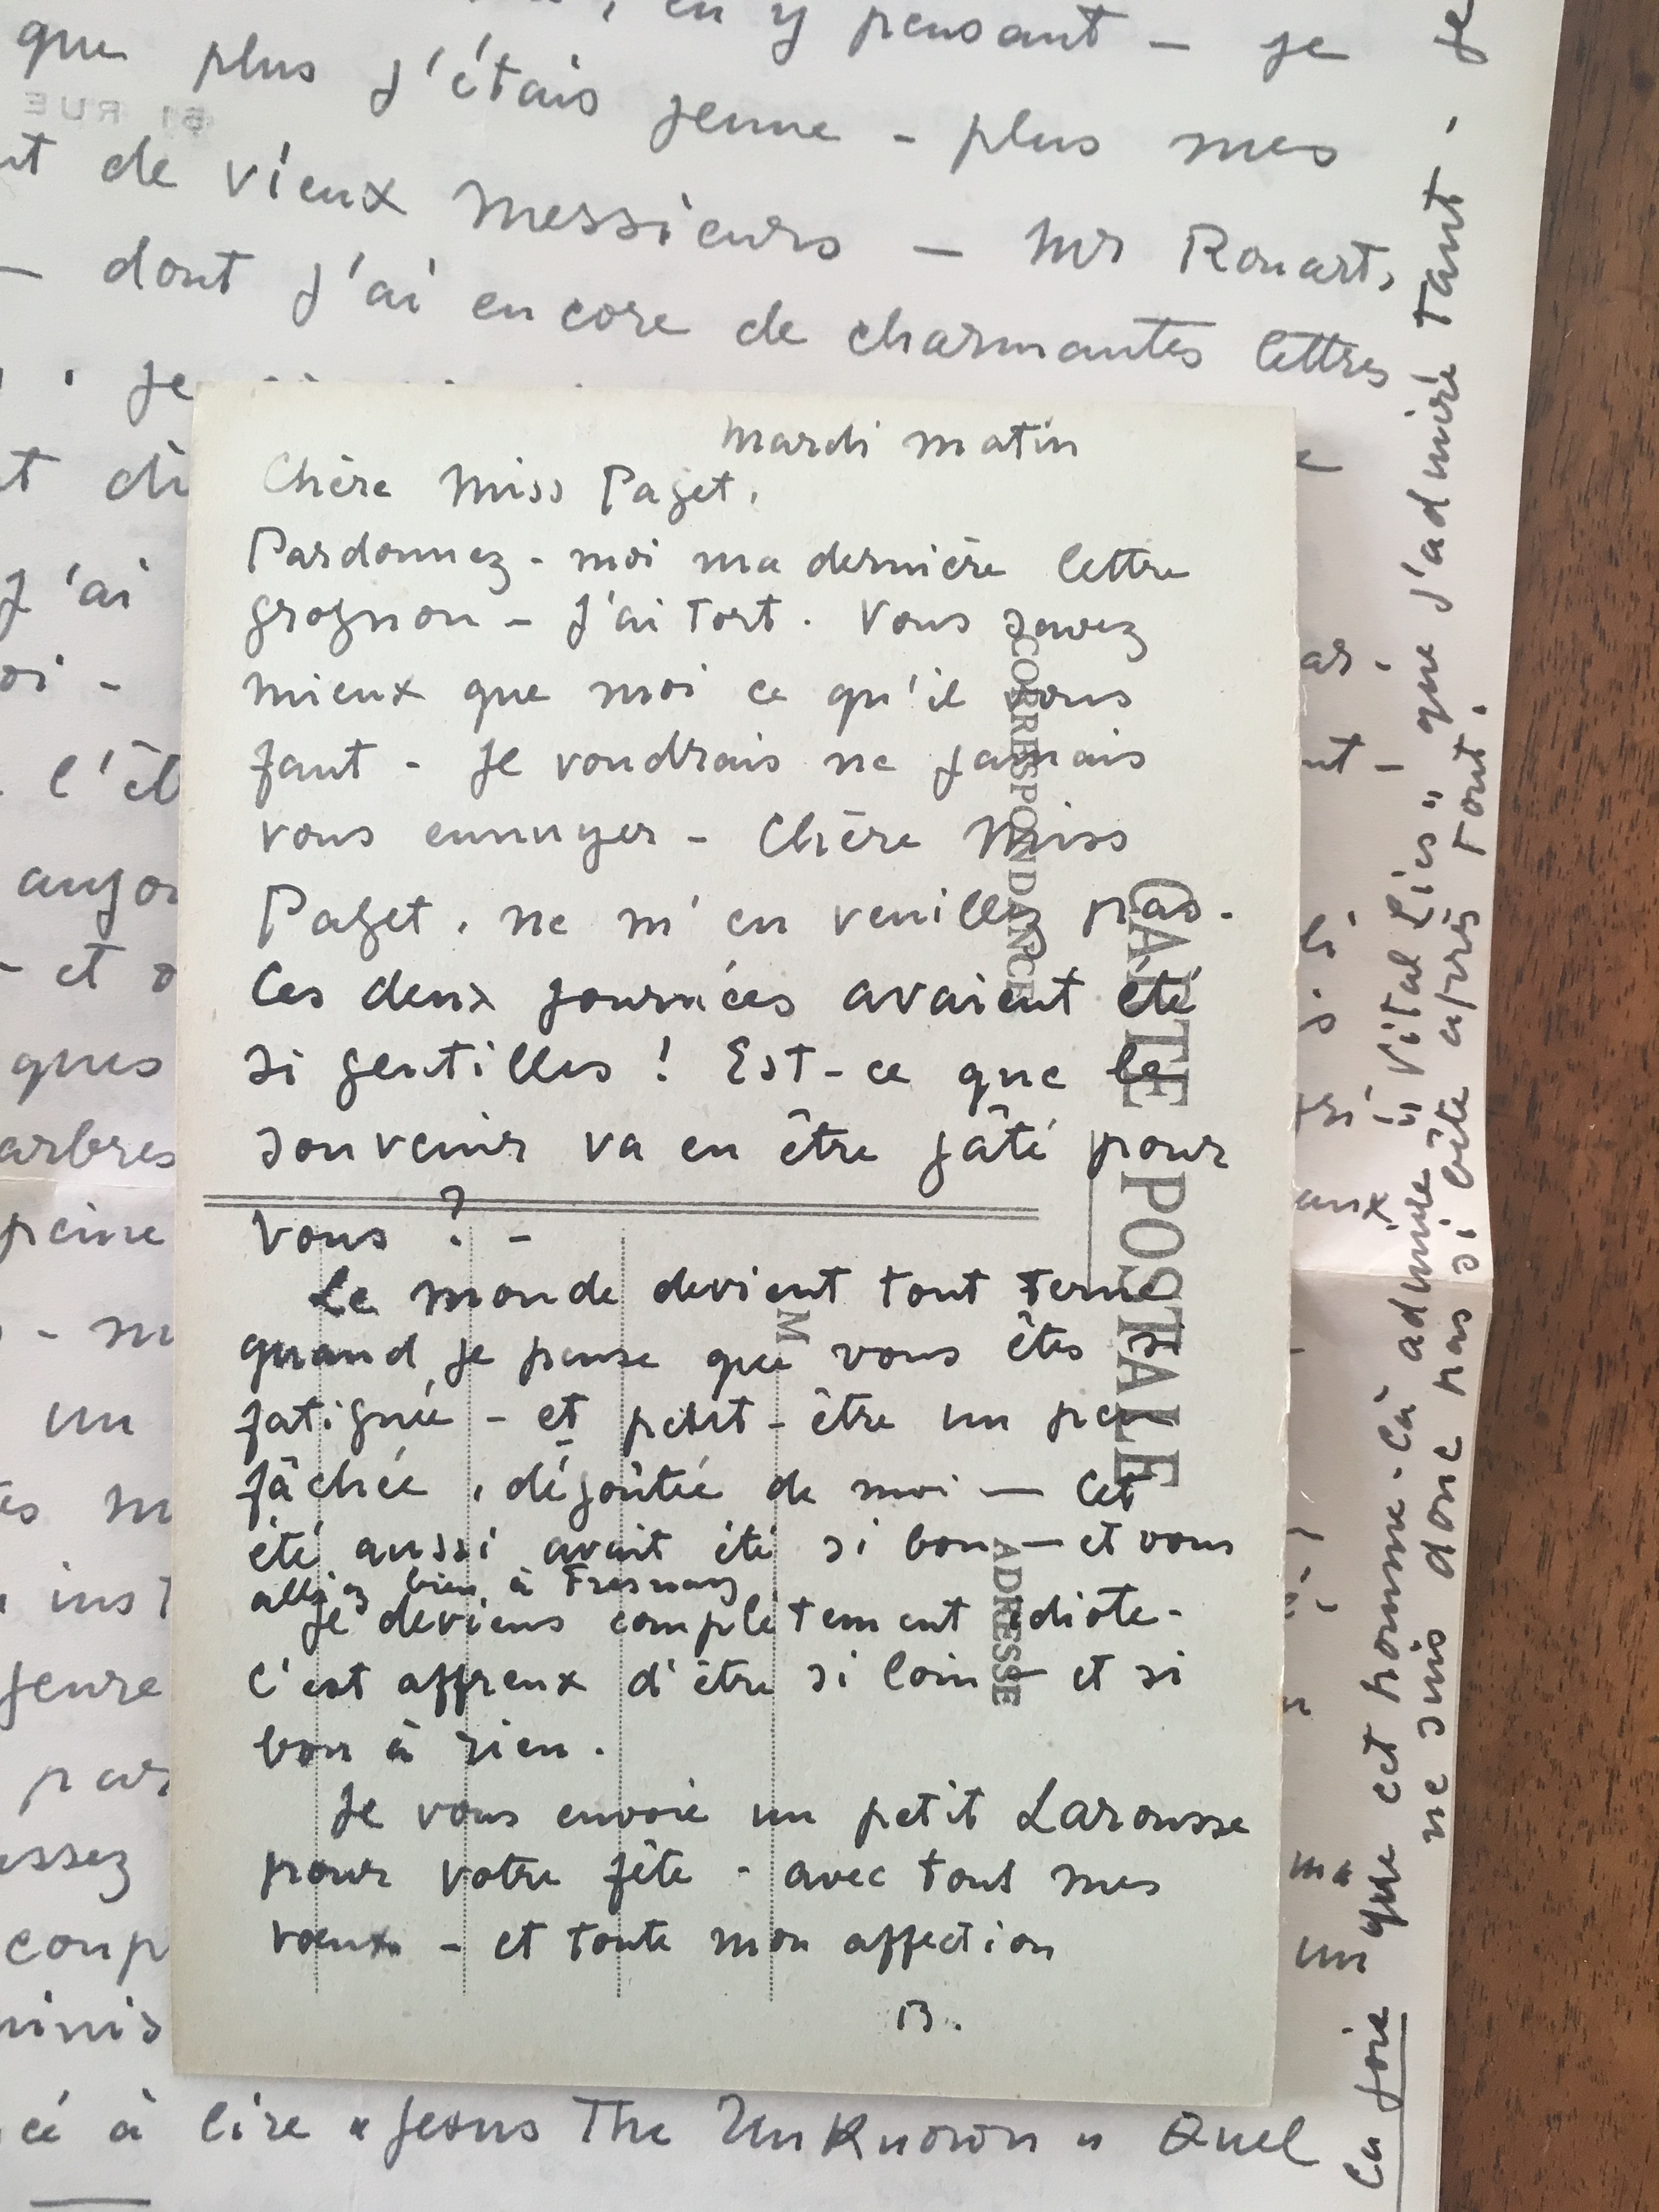 en y pensant - je
que plus j'étais jeune - plus mes
51 RUE
de vieux messieurs - Mr Rouart,
- dont j'ai encore de charmantes lettres
je
mardi matin
Chère Miss Paget,
Pardonnez-moi ma dernière lettre
grognon - j'ai tort. Vous savez
mieux que moi ce qu'il vous
faut - Je voudrais ne jamais
vous ennuyer - Chère Miss
Paget, ne m'en veuillez pas -
Ces deux journées avaient été
si gentilles ! Est-ce que le
souvenir va en être gâté pour
vous ? -
Le monde devient tout terne
quand je pense que vous êtes si
fatiguée - et peut-être un peu
fâchée, dégoûtée de moi — Cet
été aussi avait été si bon — et vous
alliez bien à Fresnay
Je deviens complètement idiote -
C'est affreux d'être si loin — et si
bon à rien.
Je vous envoie un petit Larousse
pour votre fête - avec tous mes
vœux - et toute mon affection
B.
CORRESPONDANCE
CARTE POSTALE
M
ADRESSE
di
j'ai
l'ét
et
ques
arbres
peine
un
inst
jeune
par
essez
coup
à lire "Jesus The Unknown" Quel
ma
un
la joie que cet homme-là admire "Vital Lies" que j'admire tant - je
ne suis donc pas si bête après tout.